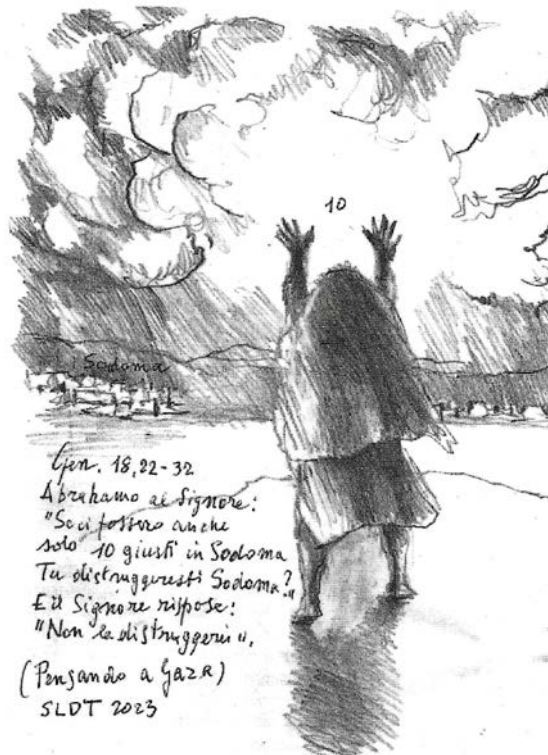 10
Sodoma
Gen. 18,22-32
Abrahamo al Signore:
"Se ci fossero anche
solo 10 giusti in Sodoma
Tu distruggeresti Sodoma?"
E il Signore rispose:
"Non la distruggerei".
(Pensando a Gaza)
SLDT 2023